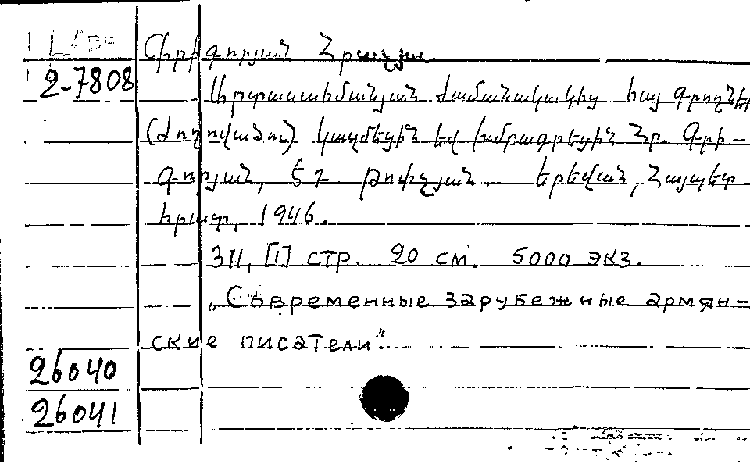 Գրիգորյան Հրաչյա
2-7808
Արտասահմանյան ժամանակակից հայ գրողներ
(Ժողովածու) կազմեցին եվ խմբագրեցին Հր. Գրի-
գորյան, Ե. Թոփչյան. Երեվան, Հայպետ
հրատ, 1946.
311, [1] стр. 20 см. 5000 экз.
„Современные зарубежные армян-
ские писатели".
26040
26041